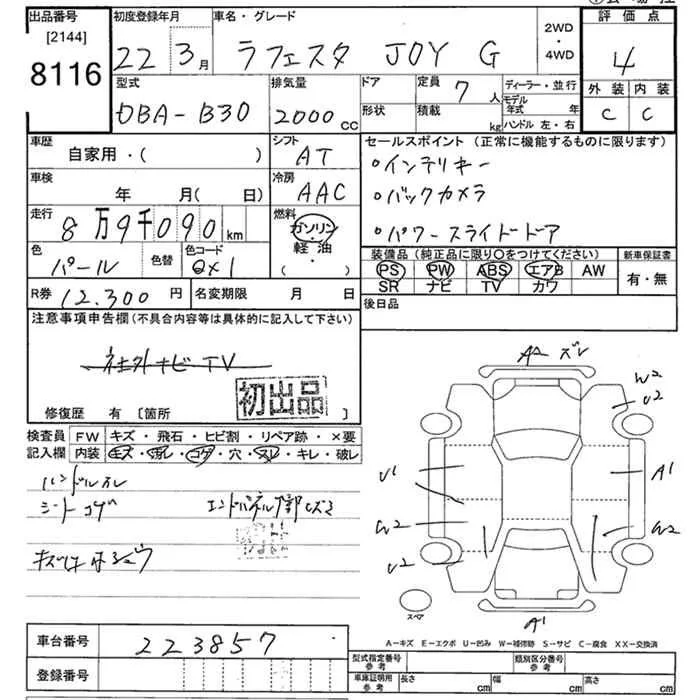 出品番号
[2144]
8116
初度登録年月
22 3月
車名・グレード
ラフェスタ JOY G
2WD
・
4WD
評価点
4
外装 内装
C C
型式
DBA-B30
排気量
2000cc
ドア
形状
定員
7人
積載
kg
ディーラー・並行
モデル
年式 年
ハンドル 左・右
車歴
自家用・( )
シフト
AT
セールスポイント (正常に機能するものに限ります)
・インテリキー
・バックカメラ
・パワースライドドア
車検
年 月(日)
冷房
AAC
走行
8万9千090km
燃料
ガソリン
軽・油
( ・ )
色
パール
色替
色コード
QX1
装備品 (純正品に限り〇をつけてください)
PS PW ABS エアB AW
SR ナビ TV カワ
新車保証書
有・無
R券 12,300円
名変期限 月 日
後日品
注意事項申告欄 (不具合内容等は具体的に記入して下さい)
社外ナビTV
初出品
修復歴 有 [箇所 ]
検査員
記入欄
FW キズ・飛石・ヒビ割・リペア跡・×要
内装 キズ・汚レ・コゲ・穴・スレ・キレ・破レ
ハンドルスレ
シートコゲ
A2 ズレ
W2
U2
U1
A1
W2
W2
U2
A1
スペア
A-キズ E-エクボ U-凹み W-補修跡 S-サビ C-腐食 XX-交換済
車台番号
223857
登録番号
型式指定番号
参考
類別区分番号
参考
車庫証明用
参考
長さ cm
幅 cm
高さ cm